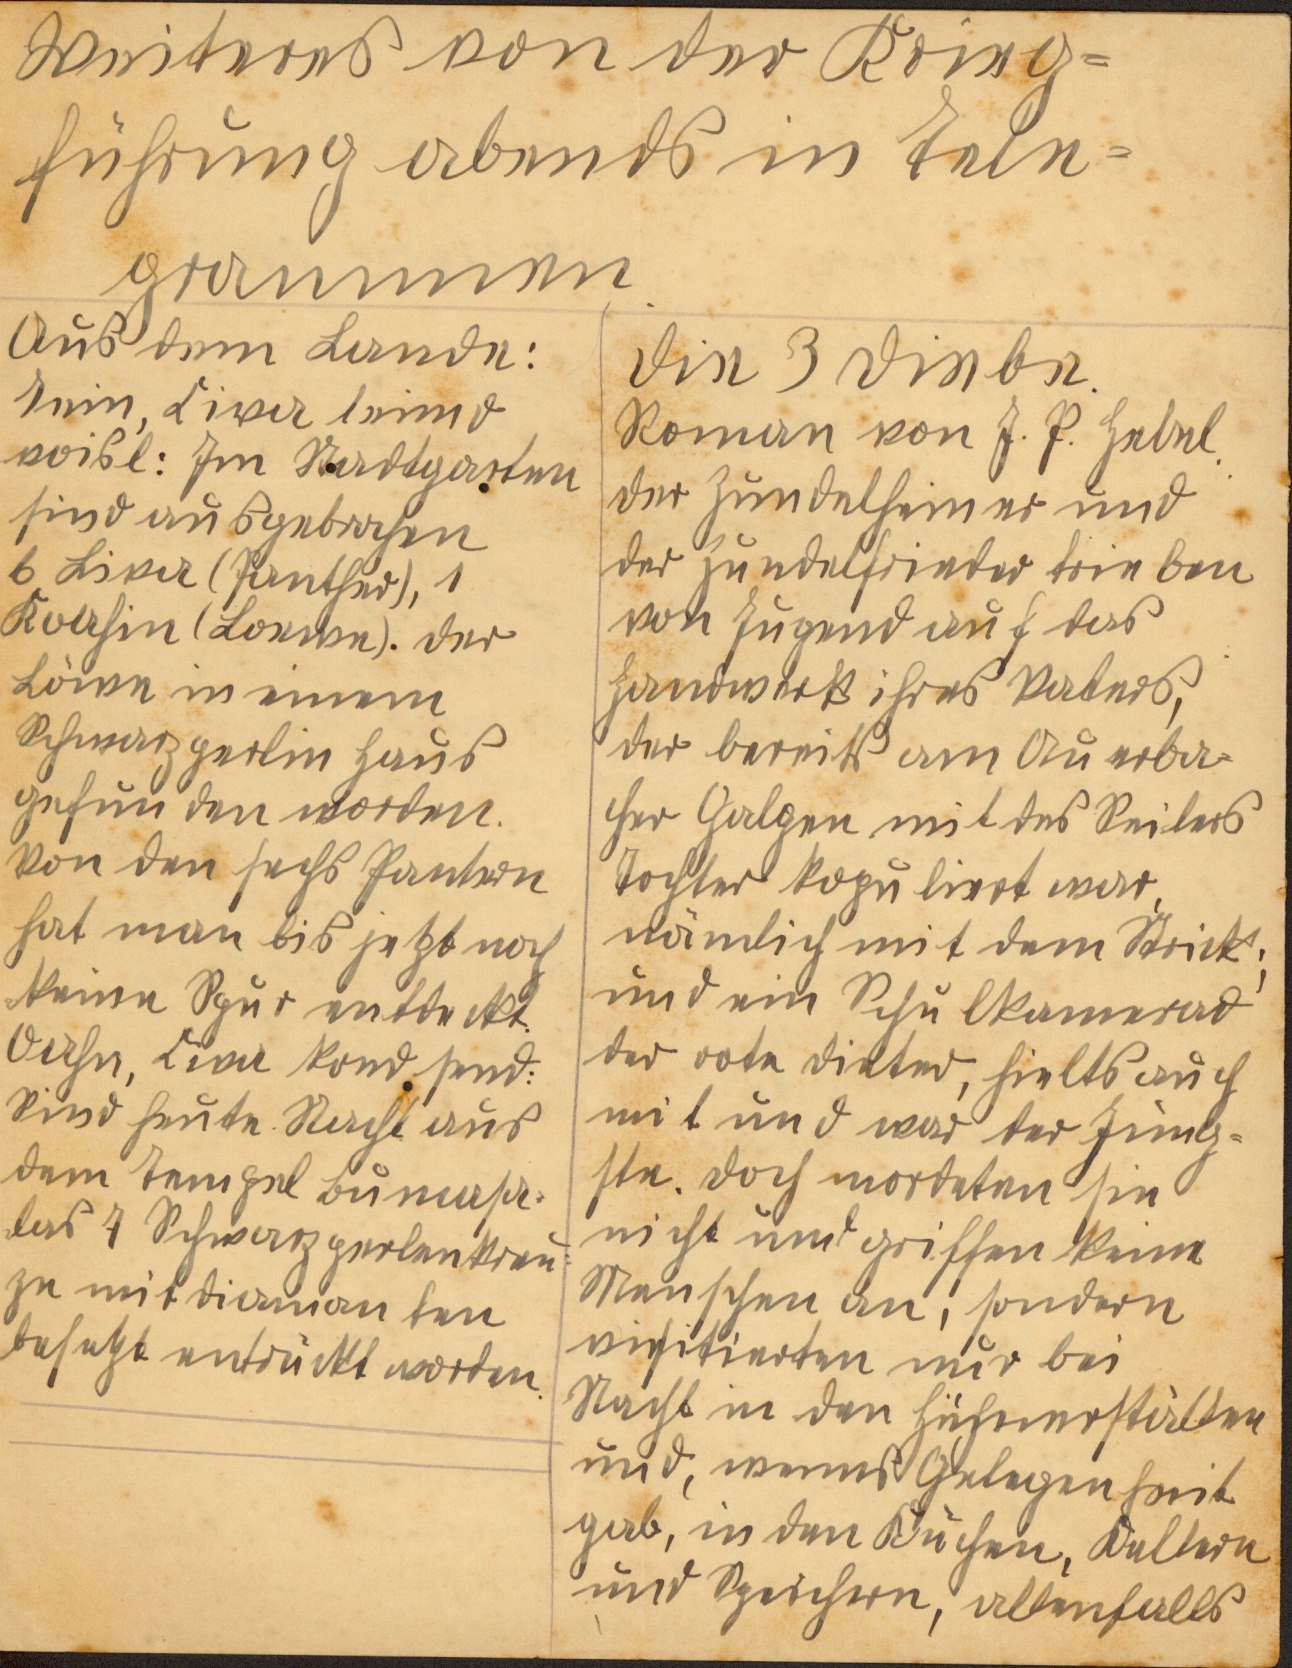 Weiteres von der Krieg=
führung abends in Tele=
grammen
Aus dem Lande:
Tein, Liva leimd
voisl: Im Stadtgarten
sind ausgebrochen
6 Liva (Panther), 1
(Loewe). Der
Löwe in einem
Schwarzperlin Haus
gefunden worden.
Von den sechs Pantern
hat man bis jetzt noch
keine Spur entdeckt.
Liva kond send:
Sind heute Nacht aus
dem Tempel
das 7 Schwarzperlenkreu=
ze mit Diamanten
besetzt entrückt worden.
Die 3 Diebe.
Roman von J. P. Hebel.
Der Zundelheiner und
der Zundelfrieder trieben
von Jugend auf das
Handwerk ihres Vaters,
der bereits am Auerba=
cher Galgen mit des Seilers
Tochter kopuliert war,
nämlich mit dem Strick;
und ein Schulkamerad
der rote Dieter, hielts auch
mit und war der Jüng=
ste. Doch mordeten sie
nicht und griffen keine
Menschen an, sondern
visitierten nur bei
Nacht in den Hühnerställen
und, wenns Gelegenheit
gab, in den Küchen, Kellern
und Speichern, allenfalls